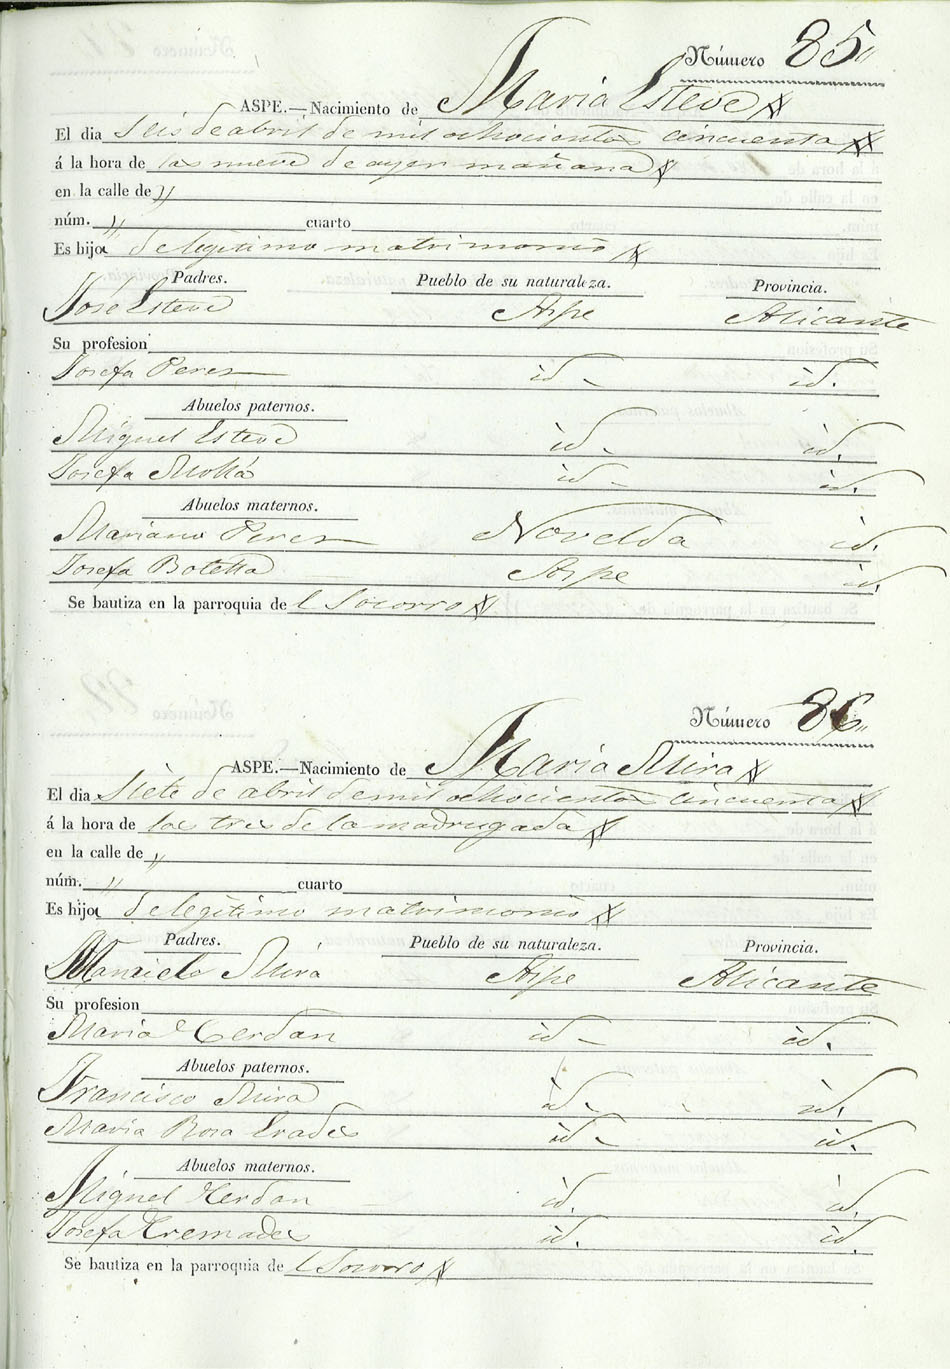 Número 85
ASPE.—Nacimiento de Maria Esteve
El dia Seis de abril de mil ochocientos cincuenta
á la hora de las nueve de ayer mañana
en la calle de "
núm. " cuarto
Es hija de legitimo matrimonio
Padres. Pueblo de su naturaleza. Provincia.
José Esteve Aspe Alicante
Su profesion
Josefa Peres id. id.
Abuelos paternos.
Miguel Esteve id. id.
Josefa Mollá id. id.
Abuelos maternos.
Mariano Peres Novelda id.
Josefa Botella Aspe id.
Se bautiza en la parroquia del Socorro
Número 86
ASPE.—Nacimiento de Maria Mira
El dia Siete de abril de mil ochocientos cincuenta
á la hora de las tres de la madrugada
en la calle de "
núm. " cuarto
Es hija de legitimo matrimonio
Padres. Pueblo de su naturaleza. Provincia.
Mira Aspe Alicante
Su profesion
Maria Cerdan id. id.
Abuelos paternos.
Francisco Mira id. id.
Maria Rosa Erades id. id.
Abuelos maternos.
Miguel Cerdan id. id.
Josefa Cremades id. id.
Se bautiza en la parroquia del Socorro